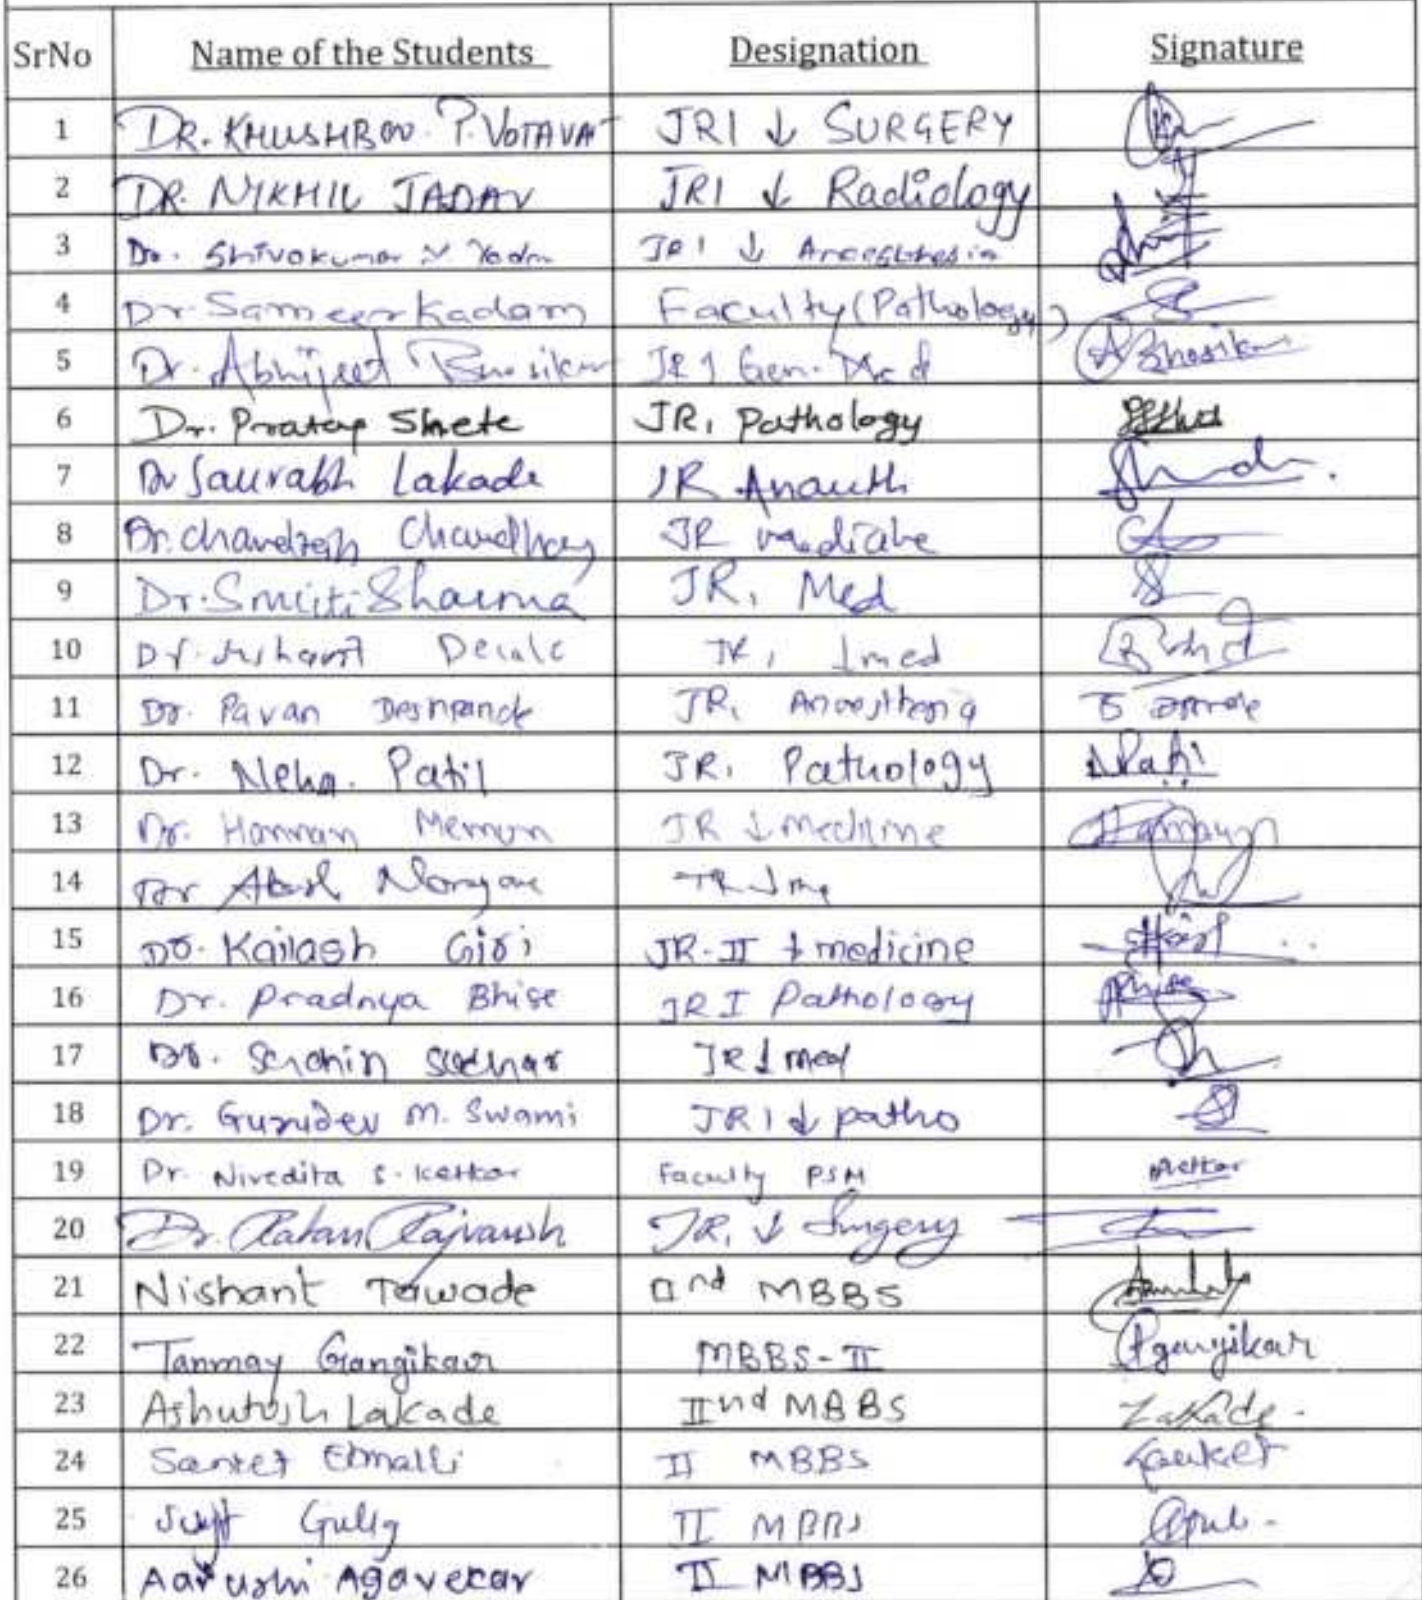 SrNo Name of the Students Designation Signature
1 DR. KHUSHBOO P. VOTAVAT JR1 ↓ SURGERY
2 DR. NIKHIL JADAV JR1 ↓ Radiology
3 Dr. Shivakumar V. Yadav JR1 ↓ Anaesthesia
4 Dr. Sameer Kadam Faculty (Pathology)
5 Dr. Abhijeet JR1 Gen. Med A Bhosikar
6 Dr. Pratap Shete JR1 Pathology
7 Dr Saurabh Lakade JR Anaesth
8 Dr. Chaudhary JR medicine
9 Dr. Smriti Sharma JR1 Med
10 Dr. JR1 ↓ med
11 Dr. Pavan Deshpande JR1 Anaesthesia
12 Dr. Neha. Patil JR1 Pathology NPatil
13 Dr. Hannan Memon JR ↓ medicine
14 Dr JR ↓
15 Dr. Kailash Giri JR-II ↓ medicine
16 Dr. Pradnya Bhise JR I Pathology
17 Dr. Sachin JR ↓ med
18 Dr. Gurudev M. Swami JR1 ↓ patho
19 Dr. Nivedita S. Ketkar Faculty PSM Ketkar
20 Dr. Ratan Rajvansh JR1 ↓ Surgery
21 Nishant Tawade IInd MBBS
22 Tanmay Gangikar MBBS-II Gangikar
23 Ashutosh Lakade IInd MBBS Lakade.
24 Sanket Etmalli II MBBS Sanket
25 II MBBS
26 Aarushi Agavekar II MBBS